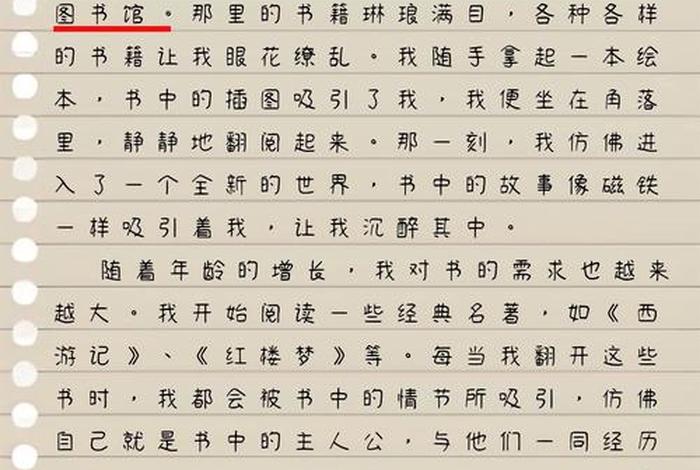 图书馆。那里的书籍琳琅满目，各种各样
的书籍让我眼花缭乱。我随手拿起一本绘
本，书中的插图吸引了我，我便坐在角落
里，静静地翻阅起来。那一刻，我仿佛进
入了一个全新的世界，书中的故事像磁铁
一样吸引着我，让我沉醉其中。
随着年龄的增长，我对书的需求也越来
越大。我开始阅读一些经典名著，如《西
游记》、《红楼梦》等。每当我翻开这些
书时，我都会被书中的情节所吸引，仿佛
自己就是书中的主人公，与他们一同经历